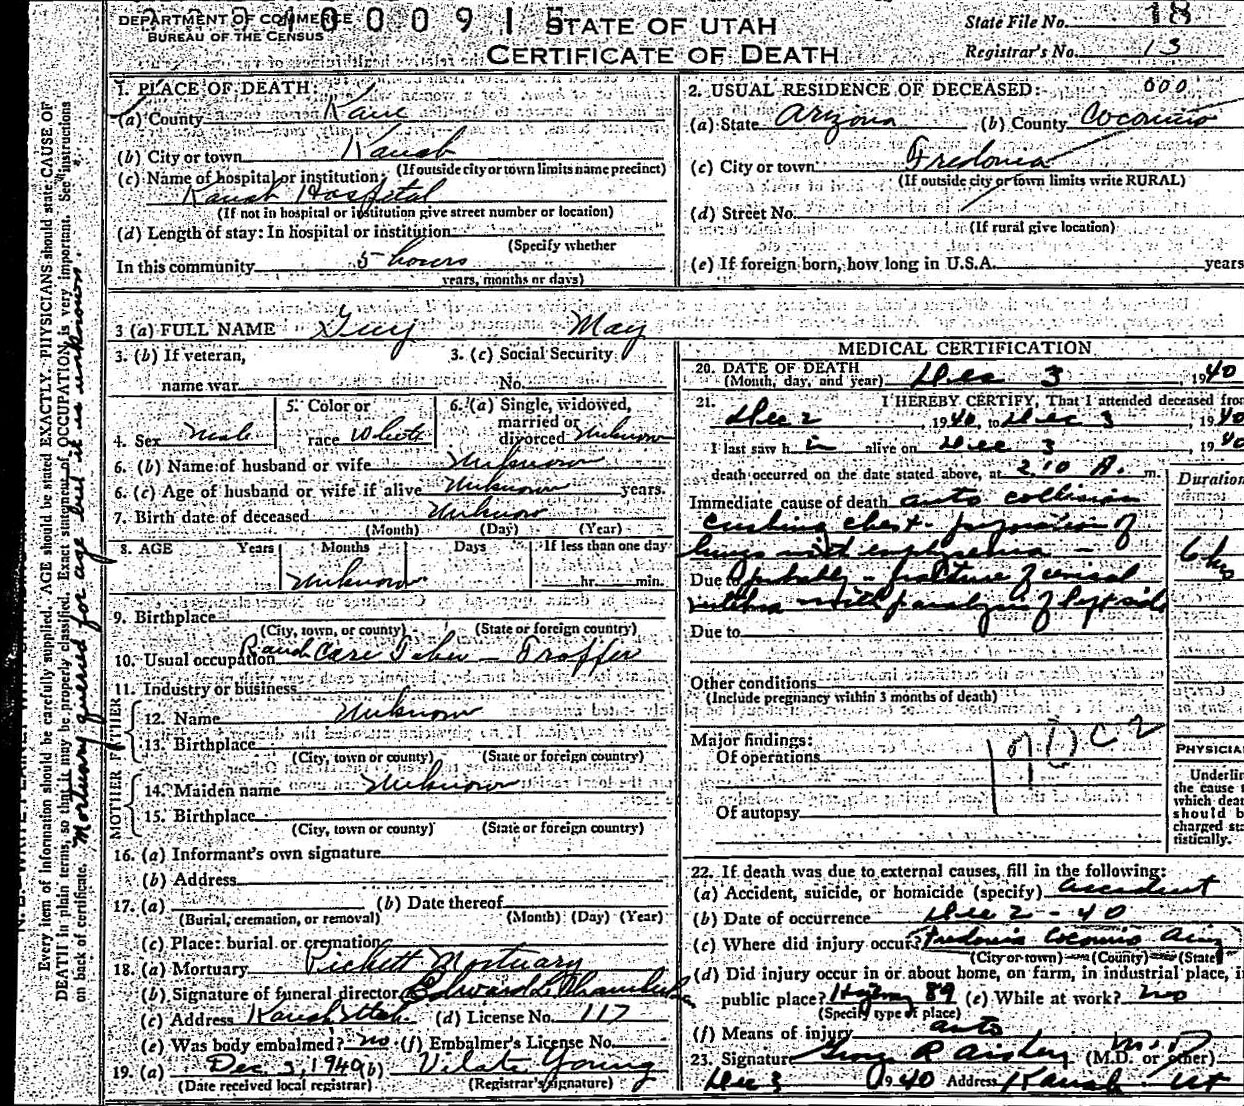 DEPARTMENT OF COMMERCE
BUREAU OF THE CENSUS
STATE OF UTAH
CERTIFICATE OF DEATH
State File No. 18
Registrar's No. 13
1. PLACE OF DEATH:
(a) County Kane
(b) City or town Kanab
(If outside city or town limits name precinct)
(c) Name of hospital or institution:
Kanab Hospital
(If not in hospital or institution give street number or location)
(d) Length of stay: In hospital or institution
(Specify whether
In this community 5 hours
years, months or days)
2. USUAL RESIDENCE OF DECEASED: 600
(a) State Arizona (b) County Coconino
(c) City or town Fredonia
(If outside city or town limits write RURAL)
(d) Street No.
(If rural give location)
(e) If foreign born, how long in U.S.A. years
3 (a) FULL NAME Guy May
3. (b) If veteran,
name war
3. (c) Social Security
No.
4. Sex Male
5. Color or
race White
6. (a) Single, widowed,
married or
divorced Unknown
6. (b) Name of husband or wife Unknown
6. (c) Age of husband or wife if alive Unknown years.
7. Birth date of deceased Unknown
(Month) (Day) (Year)
8. AGE Years Months Days If less than one day
Unknown hr. min.
9. Birthplace
(City, town, or county) (State or foreign country)
10. Usual occupation Ranch Care Taker — Trapper
11. Industry or business
FATHER
12. Name Unknown
13. Birthplace
(City, town or county) (State or foreign country)
MOTHER
14. Maiden name Unknown
15. Birthplace
(City, town or county) (State or foreign country)
16. (a) Informant's own signature
(b) Address
17. (a) (b) Date thereof
(Burial, cremation, or removal) (Month) (Day) (Year)
(c) Place: burial or cremation
18. (a) Mortuary Pickett Mortuary
(b) Signature of funeral director Edward L Chamberlain
(c) Address Kanab Utah (d) License No. 117
(e) Was body embalmed? no (f) Embalmer's License No.
19. (a) Dec. 3, 1940 (b) Vilate Young
(Date received local registrar) (Registrar's signature)
MEDICAL CERTIFICATION
20. DATE OF DEATH
(Month, day, and year) Dec 3, 1940
21. I HEREBY CERTIFY, That I attended deceased from
Dec 2, 1940, to Dec 3, 1940
I last saw him alive on Dec 3, 1940
death occurred on the date stated above, at 2 10 A. m.
Duration
Immediate cause of death auto collision
crushing chest - of
lungs with emphysema —
6 hrs
Due to probably - fracture of cervical
with paralysis of left side
Due to
Other conditions
(Include pregnancy within 3 months of death)
Major findings:
Of operations
Of autopsy
PHYSICIAN
Underline
the cause t
which deat
should b
charged sta
tistically.
22. If death was due to external causes, fill in the following:
(a) Accident, suicide, or homicide (specify) accident
(b) Date of occurrence Dec 2 - 40
(c) Where did injury occur? Fredonia Coconino Ariz
(City or town) (County) (State)
(d) Did injury occur in or about home, on farm, in industrial place, in
public place? Highway 89 (e) While at work? no
(Specify type of place)
(f) Means of injury auto
23. Signature George R Aiken M.D. (M.D. or other)
Dec 3 1940 Address Kanab - Ut
Every item of information should be carefully supplied. AGE should be stated EXACTLY. PHYSICIANS should state CAUSE OF
DEATH in plain terms, so that it may be properly classified. Exact statement of OCCUPATION is very important. See instructions
on back of certificate.
Mortuary queried for age but it is unknown.